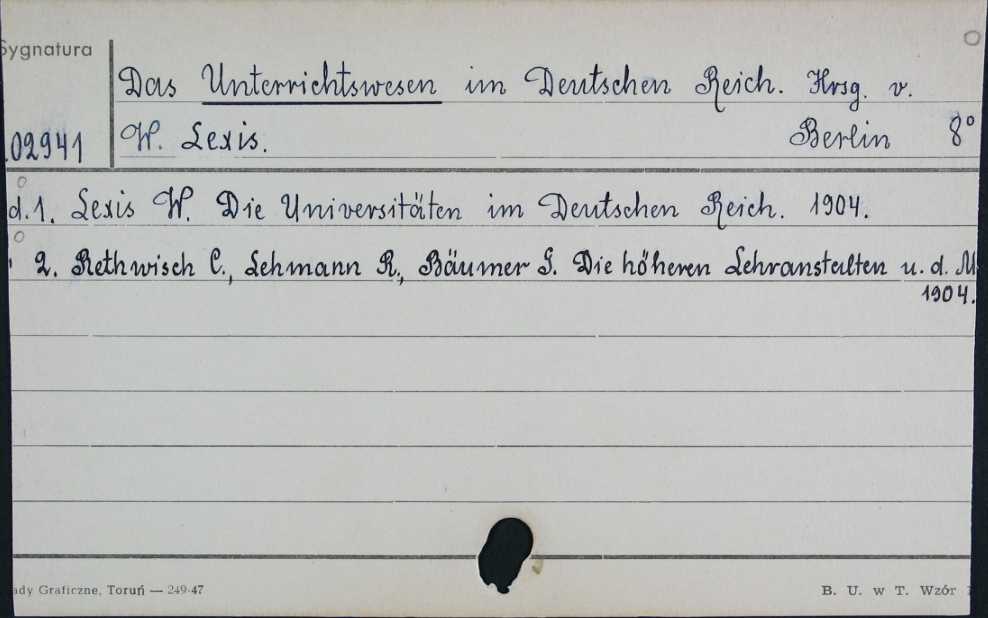 Sygnatura
Das Unterrichtswesen im Deutschen Reich. Hrsg. v.
02941 W. Lexis. Berlin 8°
d.1. Lexis W. Die Universitäten im Deutschen Reich. 1904.
2. Rethwisch C., Lehmann R., Bäumer G. Die höheren Lehranstalten u. d. M
1904.
ady Graficzne, Toruń — 249-47 B. U. w T. Wzór